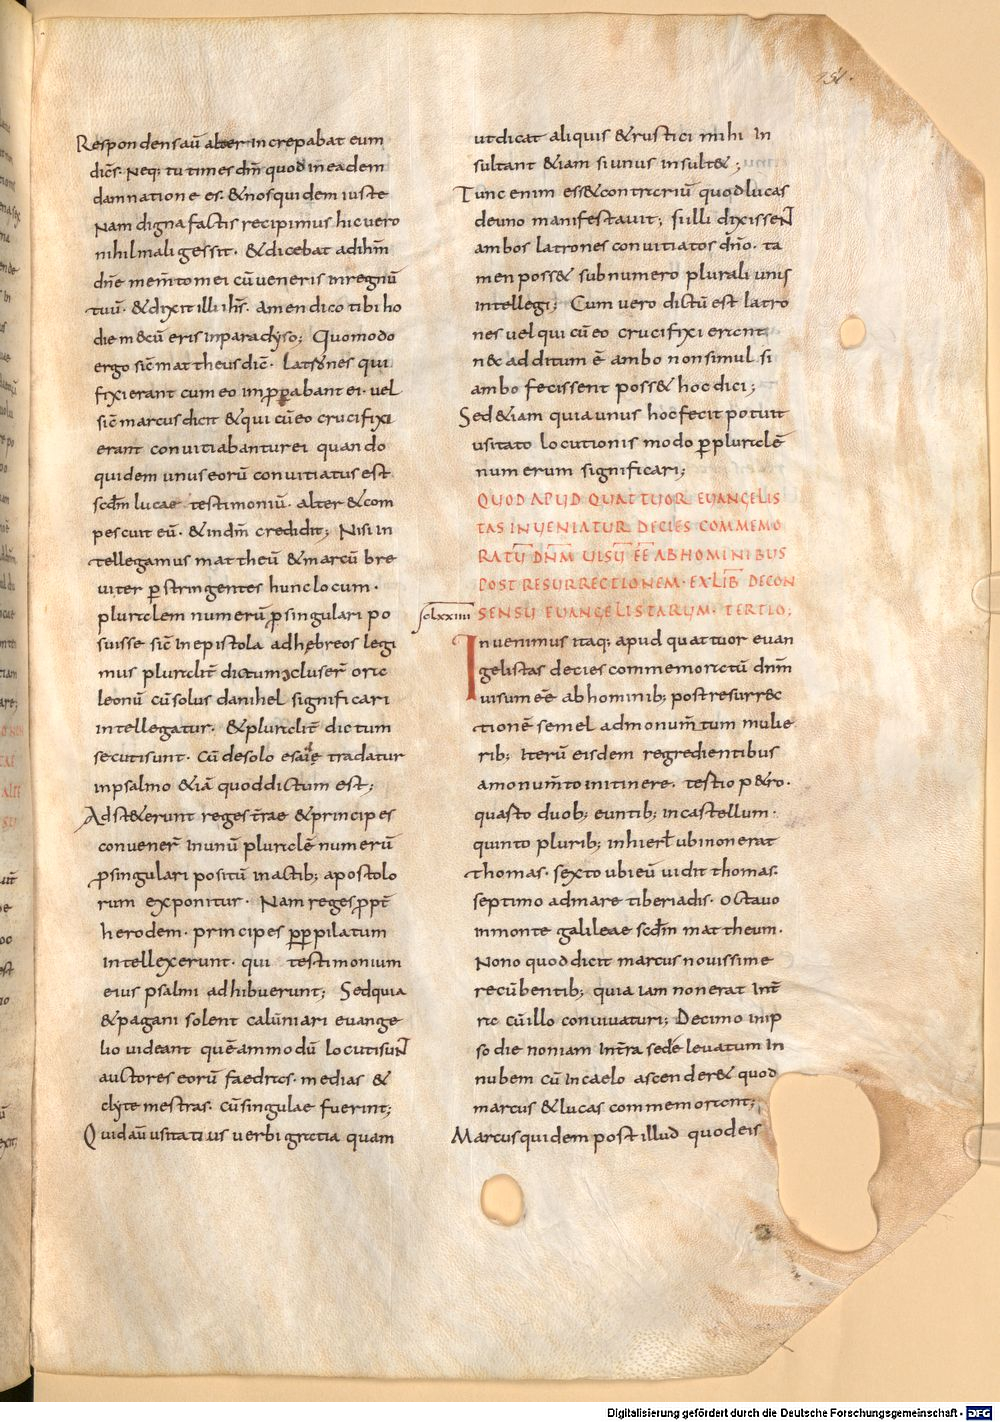 151.
Respondens aū alter increpabat eum
dicēs. Neq; tu times dm̄ quod in eadem
damnatione es. & nos quidem iuste
Nam digna factis recipimus hic vero
nihil mali gessit. & dicebat ad ihm̄
dn̄e mem̄to mei cū veneris in regnū
tuū. & dixit illi ih̄s. amen dico tibi ho
die mecū eris in paradyso; Quomodo
ergo sic̄ mattheus dic̄. Latrones qui
fixi erant cum eo improperabant ei. vel
sic̄ marcus dicit & qui cū eo crucifixi
erant convitiabantur ei quando
quidem unus eorū convitiatus est
scd̄m lucae testimoniū. alter & com
pescuit eū. & in dm̄ credidit; Nisi in
tellegamus mattheū & marcū bre
viter perstringentes hunc locum.
pluralem numerū p singulari po
suisse sic̄ in epistola ad hebreos legi
mus pluralit̄ dictum cluser̄ ora
leonū cū solus danihel significari
intellegatur. & pluralit̄ dictum
secuti sunt. Cū de solo esaię tradatur
in psalmo &iā quod dictum est;
Adst&erunt reges t̄rae & principes
convener̄ in unū pluralē numerū
p singulari positū in actib; apostolo
rum exponitur. Nam reges ppt̄
herodem. principes pp pilatum
intellexerunt. qui testimonium
eius psalmi adhibuerunt; Sed quia
& pagani solent calūniari evange
lio videant quēammodū locuti suN̄
auctores eorū faedras. medias &
clyte mestras. cū singulae fuerint;
Quid aū usitatius verbi gratia quam
ut dicat aliquis & rustici mihi in
sultant &iam si unus insult&;
Tunc enim ess& contrariū quod lucas
de uno manifestavit; si illi dixisseN̄
ambos latrones convitiatos dn̄o. ta
men poss& sub numero plurali unus
intellegi; Cum vero dictū est latro
nes vel qui cū eo crucifixi erant
nec additum ē ambo non simul si
ambo fecissent poss& hoc dici;
Sed &iam quia unus hoc fecit potuit
usitato locutionis modo p pluralē
numerum significari;
QUOD APUD QUATTUOR EUANGELIS
TAS INUENIATUR DECIES COMMEMO
RATŪ DN̄M UISŪ EĒ AB HOMINIBUS
POST RESURRECTIONEM. EX LIB̄ DE CON
SENSU EUANGELISTARUM. TERTIO;
sol xxiiii
Invenimus itaq; apud quattuor evan
gelistas decies commemoratū dn̄m
visum eē ab hominib; post resurrec
tionē semel ad monum̄tum mulie
rib; Iterū eisdem regredientibus
a monum̄to in itinere. testio p&ro.
quasto duob; euntib; in castellum.
quinto plurib; in hierł ubi non erat
thomas. sexto ubi eū vidit thomas.
septimo ad mare tiberiadis. octavo
in monte galileae scd̄m mattheum.
Nono quod dicit marcus novissime
recūbentib; quia iam non erat int̄
ra cū illo convivaturi; Decimo in ip
so die non iam int̄ra sede levatum in
nubem cū in caelo ascender& quod
marcus & lucas commemorant;
Marcus quidem post illud quod eis
Digitalisierung gefördert durch die Deutsche Forschungsgemeinschaft - DFG